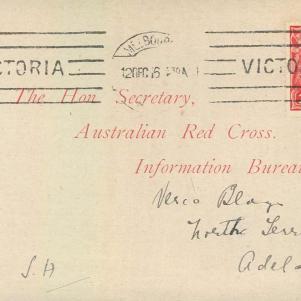 MELBOURNE
CTORIA 12DEC16 VICTO
The Hon Secretary,
Australian Red Cross.
Information Burea
Verco Bldgs
North Terr
Adela
S.A